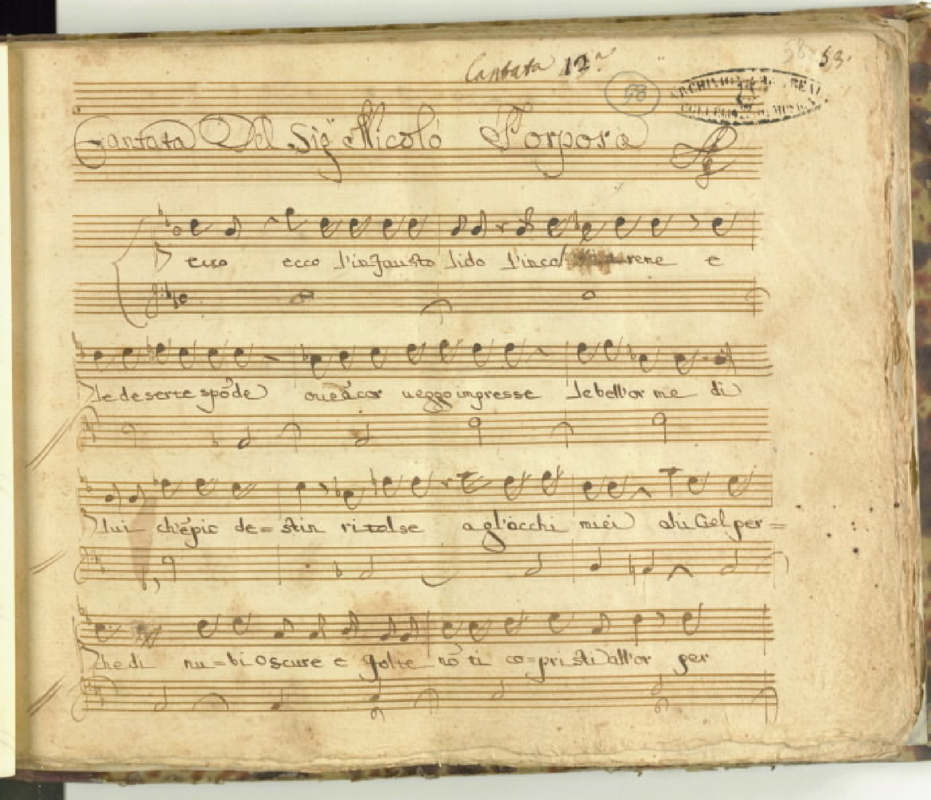 Cantata 12ª
58 53.
58
ARCHIVIO REAL
COLLEGIO DI MUSICA
Cantata Del Sig.r Nicolò Porpora
ecco ecco l'infausto lido l'inca rene e
le deserte spõde oue ãcor ueggo impresse le bell'orme di
lui ch'ẽpio de=stin ritolse a gl'occhi miei ahi Ciel per=
che di nu=bi oscure e folte nõ ti co=pristi all'or per